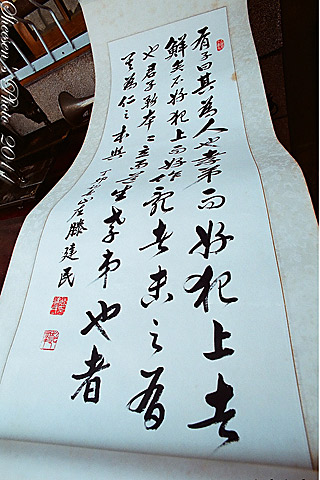 有子曰其為人也孝弟而好犯上者
鮮矣不好犯上而好作亂者未之有
也君子務本々立而道生孝弟也者
其為仁之本與
滕建民
Photo 2011